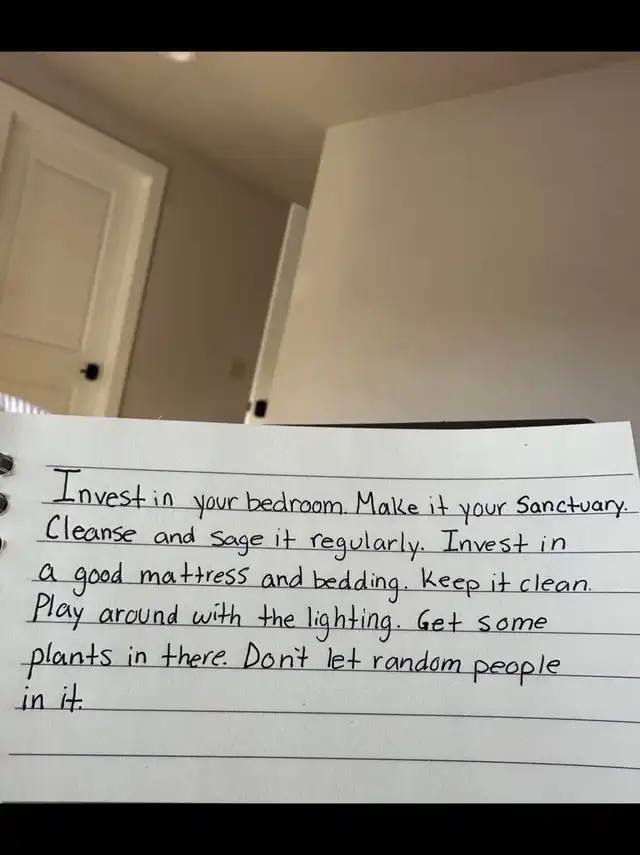 Invest in your bedroom. Make it your Sanctuary.
Cleanse and sage it regularly. Invest in
a good mattress and bedding. Keep it clean.
Play around with the lighting. Get some
plants in there. Don't let random people
in it.